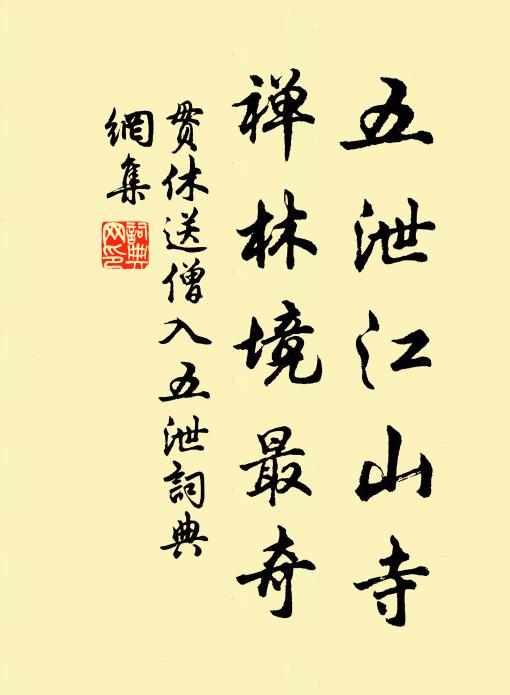 五泄江山寺
禅林境最奇
贯休送僧入五泄詞典
網集
詞典网印